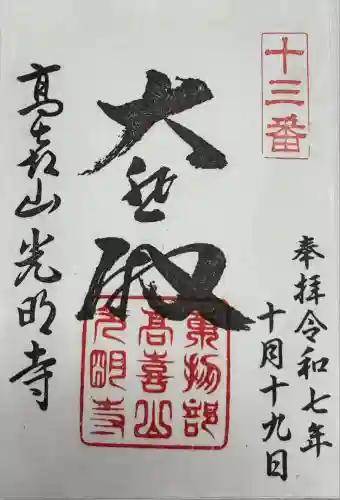 十三番
奉拝令和七年
十月十九日
大悲殿
高㐂山光明寺
東物部
高喜山
光明寺